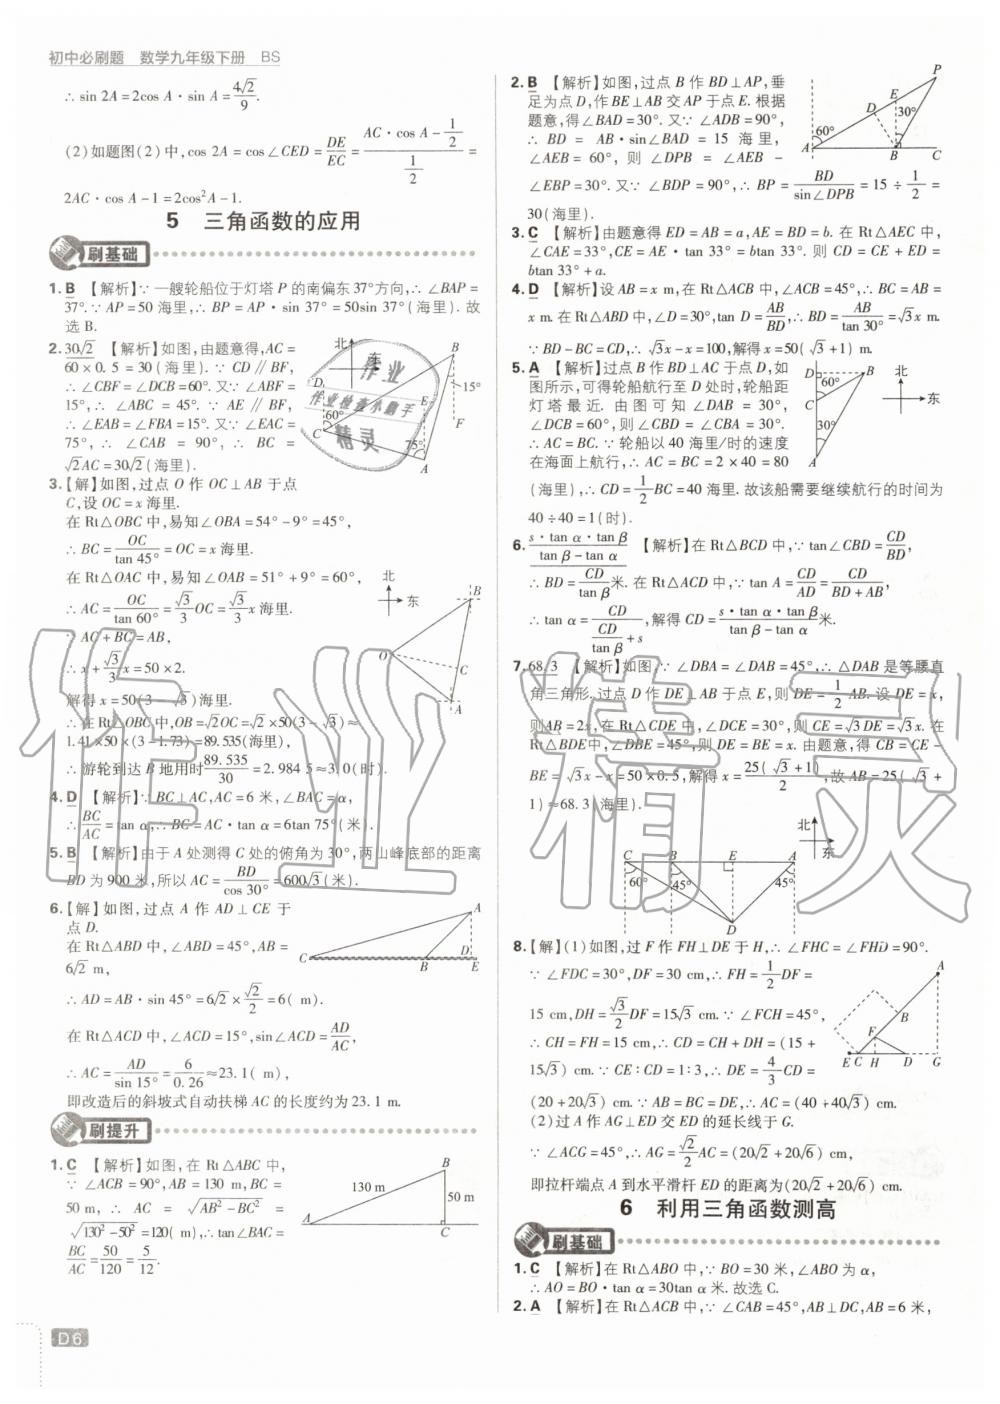 初中必刷题 数学九年级下册 BS
∴ sin 2A=2cos A·sin A=4√2/9.
(2)如题图(2)中,cos 2A=cos∠CED=DE/EC=(AC·cos A-1/2)/(1/2)=
2AC·cos A-1=2cos²A-1.
5 三角函数的应用
刷基础
1. B 【解析】∵一艘轮船位于灯塔 P 的南偏东37°方向,∴∠BAP=
37°.∵AP=50 海里,∴BP=AP·sin 37°=50sin 37°(海里).故
选 B.
2. 30√2 【解析】如图,由题意得,AC=
60×0.5=30(海里).∵CD∥BF,
∴∠CBF=∠DCB=60°.又∵∠ABF=
15°,∴∠ABC=45°.∵AE∥BF,
∴∠EAB=∠FBA=15°.又∵∠EAC=
75°,∴∠CAB=90°,∴BC=
√2AC=30√2(海里).
北
东
D
B
15°
E
F
60°
C
75°
A
3.【解】如图,过点 O 作 OC⊥AB 于点
C,设 OC=x 海里.
在 Rt△OBC 中,易知∠OBA=54°-9°=45°,
∴BC=OC/tan 45°=OC=x 海里.
在 Rt△OAC 中,易知∠OAB=51°+9°=60°,
∴AC=OC/tan 60°=√3/3 OC=√3/3 x 海里.
∵AC+BC=AB,
∴x+√3/3 x=50×2.
解得 x=50(3-√3)海里.
∴在 Rt△OBC 中,OB=√2OC=√2×50(3-√3)≈
1.41×50×(3-1.73)=89.535(海里),
∴游轮到达 B 地用时89.535/30=2.984 5≈3.0(时).
北
东
B
O
C
A
4. D 【解析】∵BC⊥AC,AC=6 米,∠BAC=α,
∴BC/AC=tan α,∴BC=AC·tan α=6tan 75°(米).
5. B 【解析】由于 A 处测得 C 处的俯角为 30°,两山峰底部的距离
BD 为 900 米,所以 AC=BD/cos 30°=600√3(米).
6.【解】如图,过点 A 作 AD⊥CE 于
点 D.
在 Rt△ABD 中,∠ABD=45°,AB=
6√2 m,
∴AD=AB·sin 45°=6√2×√2/2=6( m).
在 Rt△ACD 中,∠ACD=15°,sin∠ACD=AD/AC,
∴AC=AD/sin 15°=6/0.26≈23.1( m),
即改造后的斜坡式自动扶梯 AC 的长度约为 23.1 m.
A
C
B
D
E
刷提升
1. C 【解析】如图,在 Rt△ABC 中,
∵∠ACB=90°,AB=130 m,BC=
50 m,∴AC=√(AB²-BC²)=
√(130²-50²)=120( m),∴tan∠BAC=
BC/AC=50/120=5/12.
B
130 m
50 m
A
C
D6
2. B 【解析】如图,过点 B 作 BD⊥AP,垂
足为点 D,作 BE⊥AB 交 AP 于点 E.根据
题意,得∠BAD=30°.又∵∠ADB=90°,
∴BD=AB·sin∠BAD=15 海里,
∠AEB=60°,则∠DPB=∠AEB-
∠EBP=30°.又∵∠BDP=90°,∴BP=BD/sin∠DPB=15÷1/2=
30(海里).
P
E
D
30°
60°
A
B
C
3. C 【解析】由题意得 ED=AB=a,AE=BD=b.在 Rt△AEC 中,
∠CAE=33°,CE=AE·tan 33°=btan 33°.则 CD=CE+ED=
btan 33°+a.
4. D 【解析】设 AB=x m,在 Rt△ACB 中,∠ACB=45°,∴BC=AB=
x m.在 Rt△ABD 中,∠D=30°,tan D=AB/BD,∴BD=AB/tan 30°=√3x m.
∵BD-BC=CD,∴√3x-x=100,解得 x=50(√3+1) m.
5. A 【解析】过点 B 作 BD⊥AC 于点 D,如
图所示,可得轮船航行至 D 处时,轮船距
灯塔最近.由图可知∠DAB=30°,
∠DCB=60°,则∠CBD=∠CBA=30°.
∴AC=BC.∵轮船以 40 海里/时的速度
在海面上航行,∴AC=BC=2×40=80
(海里),∴CD=1/2 BC=40 海里.故该船需要继续航行的时间为
40÷40=1(时).
D
B
60°
C
30°
A
北
东
6. s·tan α·tan β/(tan β-tan α) 【解析】在 Rt△BCD 中,∵tan∠CBD=CD/BD,
∴BD=CD/tan β米.在 Rt△ACD 中,∵tan A=CD/AD=CD/(BD+AB),
∴tan α=CD/(CD/tan β+s),解得 CD=s·tan α·tan β/(tan β-tan α)米.
7. 68.3 【解析】如图.∵∠DBA=∠DAB=45°,∴△DAB 是等腰直
角三角形.过点 D 作 DE⊥AB 于点 E,则 DE=1/2 AB.设 DE=x,
则AB=2x,在 Rt△CDE 中,∠DCE=30°,则 CE=√3DE=√3x.在
Rt△BDE中,∠DBE=45°,则 DE=BE=x.由题意,得 CB=CE-
BE=√3x-x=50×0.5,解得 x=25(√3+1)/2,故 AB=25(√3+
1)≈68.3(海里).
北
东
C
B
E
A
60°
45°
45°
D
8.【解】(1)如图,过 F 作 FH⊥DE 于 H,∴∠FHC=∠FHD=90°.
∵∠FDC=30°,DF=30 cm,∴FH=1/2 DF=
15 cm,DH=√3/2 DF=15√3 cm.∵∠FCH=45°,
∴CH=FH=15 cm,∴CD=CH+DH=(15+
15√3) cm.∵CE:CD=1:3,∴DE=4/3 CD=
(20+20√3) cm.∵AB=BC=DE,∴AC=(40+40√3) cm.
(2)过 A 作 AG⊥ED 交 ED 的延长线于 G.
∵∠ACG=45°,∴AG=√2/2 AC=(20√2+20√6) cm,
即拉杆端点 A 到水平滑杆 ED 的距离为(20√2+20√6) cm.
A
B
F
E C H D G
6 利用三角函数测高
刷基础
1. C 【解析】在 Rt△ABO 中,∵BO=30 米,∠ABO 为 α,
∴AO=BO·tan α=30tan α 米.故选C.
2. A 【解析】在 Rt△ACB 中,∵∠CAB=45°,AB⊥DC,AB=6 米,
作业
作业检查小助手
精灵
作业精灵